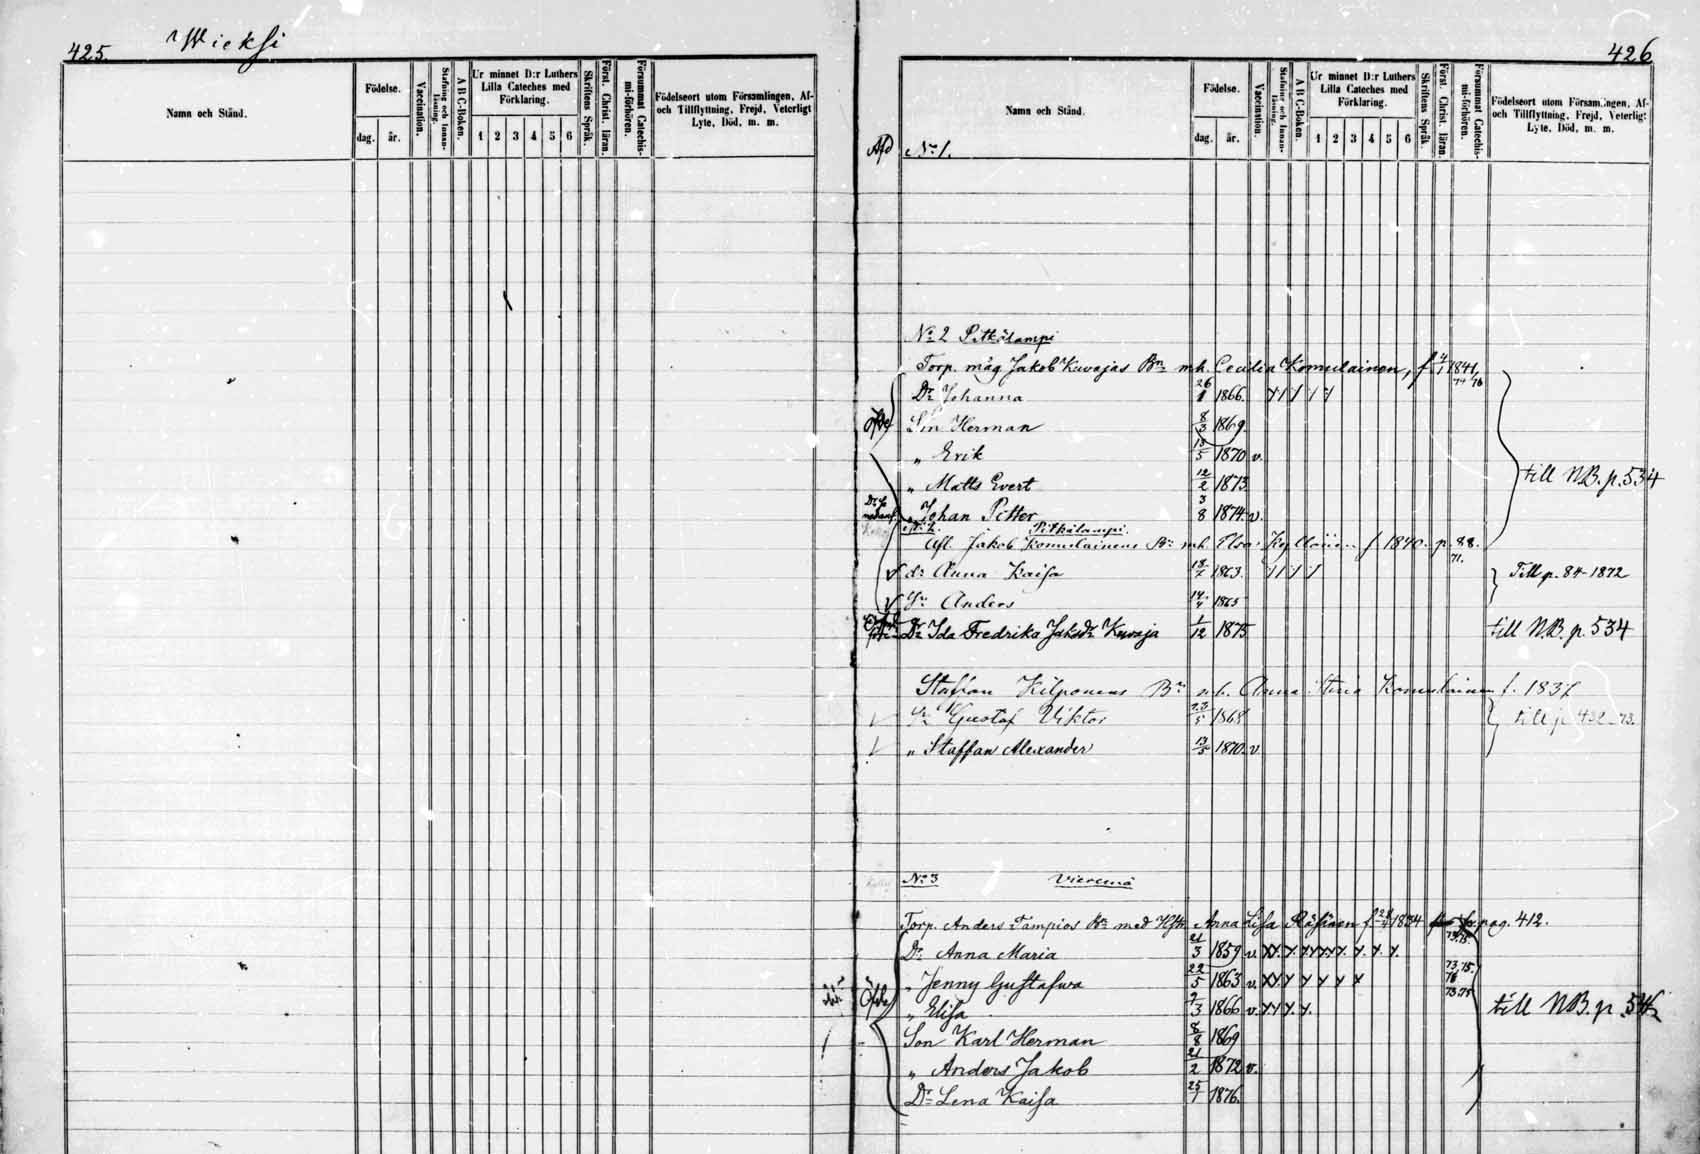 425. Wieksi
Namn och Stånd.
Födelse.
dag. år.
Vaccination.
Stafning och Innan-läsning.
A B C-Boken.
Ur minnet D:r Luthers Lilla Cateches med Förklaring.
1 2 3 4 5 6
Skriftens Språk.
Först. Christ. läran.
Försummat Catechis-mi-förhören.
Födelseort utom Församlingen, Af- och Tillflyttning, Frejd, Veterligt Lyte, Död, m. m.
426
Namn och Stånd.
Födelse.
dag. år.
Vaccination.
Stafning och Innan-läsning.
A B C-Boken.
Ur minnet D:r Luthers Lilla Cateches med Förklaring.
1 2 3 4 5 6
Skriftens Språk.
Först. Christ. läran.
Försummat Catechis-mi-förhören.
Födelseort utom Församlingen, Af- och Tillflyttning, Frejd, Veterligt Lyte, Död, m. m.
Afd No 1.
No 2 Pitkälampi
Torp. måg Jakob Kuvajas Bn m.h. Cecilia Komulainen, f. 4/1 1841,
Dr Johanna 26/1 1866.
Sn Herman 8/3 1869
„ Erik 13/5 1870 v.
„ Matts Evert 12/2 1873 till N.B. p. 534
„ Johan Petter 3/8 1874. v.
No 2. Pitkälampi.
Jakob Komulainens Bn m.h. Elsa f 1840. p 88.
71.
dr Anna Kaisa 18/7 1863. Till p. 84-1872
Sn Anders 14/4 1865
Dr Ida Fredrika Jaksdr Kuvaja 1/12 1875 till N.B. p. 534
Staffan Kilponens Bn m.h. Anna Stina Komulainen f. 1837
Sn Gustaf Viktor 23/5 1868 till p. 432-73.
„ Staffan Alexander 1870. v
No 3 Vieremä
Torp. Anders Tampios Bn med Hstr Anna Lisa Räsäsen f 1834 pag. 412.
Dr Anna Maria 21/3 1859 v. 73.75.
„ Jenny Gustafva 22/5 1863 v. 73.75. 76
„ Elisa 7/3 1866 v. 73 75 till N.B. p.
Son Karl Herman 8/8 1869
„ Anders Jakob 21/2 1872 v.
Dr Lena Kaisa 25/1 1876.